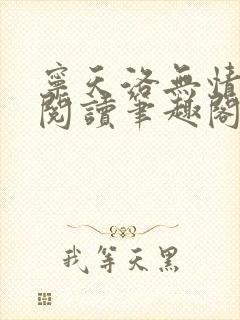 寧天洛無情
閱讀筆趣閣
我等天黑